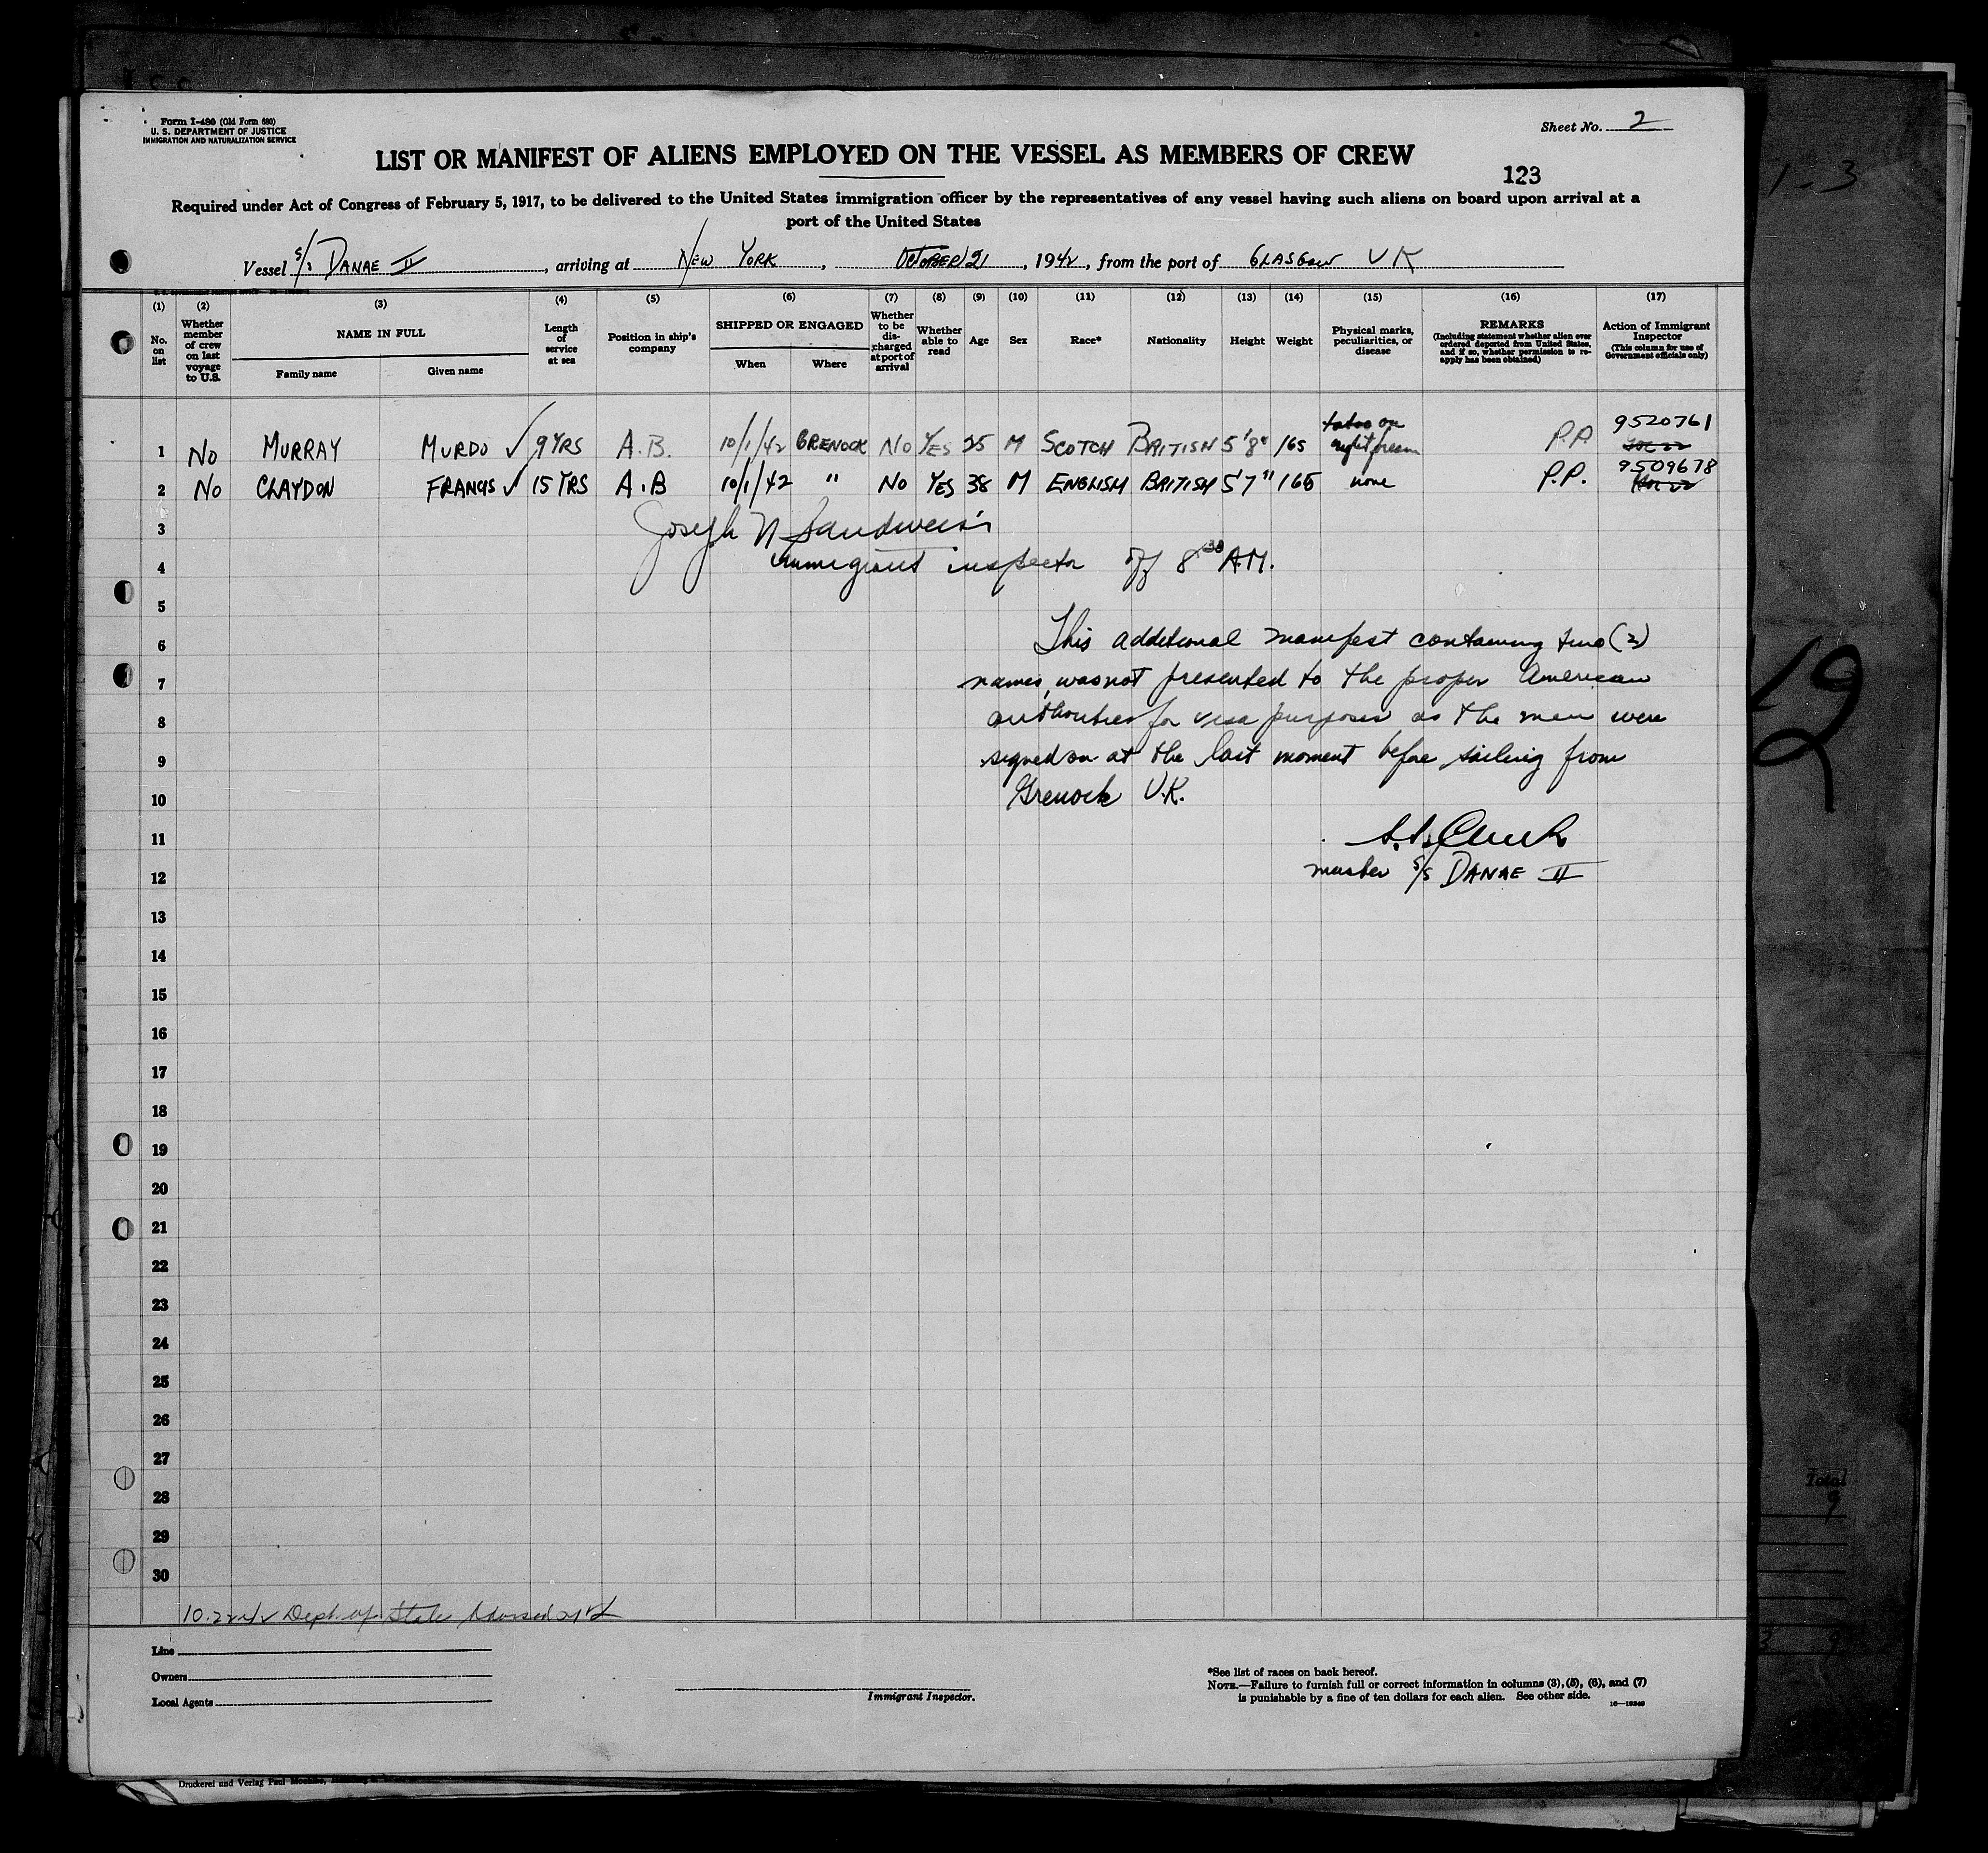 Form I-480 (Old Form 680)
U. S. DEPARTMENT OF JUSTICE
IMMIGRATION AND NATURALIZATION SERVICE
Sheet No. 2
LIST OR MANIFEST OF ALIENS EMPLOYED ON THE VESSEL AS MEMBERS OF CREW
123
Required under Act of Congress of February 5, 1917, to be delivered to the United States immigration officer by the representatives of any vessel having such aliens on board upon arrival at a
port of the United States
Vessel S/S DANAE II, arriving at NEW YORK, OCTOBER 21, 1942, from the port of GLASGOW UK
(1) No. on list
(2) Whether member of crew on last voyage to U.S.
(3) NAME IN FULL Family name Given name
(4) Length of service at sea
(5) Position in ship's company
(6) SHIPPED OR ENGAGED When Where
(7) Whether to be discharged at port of arrival
(8) Whether able to read
(9) Age
(10) Sex
(11) Race*
(12) Nationality
(13) Height
(14) Weight
(15) Physical marks, peculiarities, or disease
(16) REMARKS (Including statement whether alien ever ordered deported from United States, and if so, whether permission to reapply has been obtained)
(17) Action of Immigrant Inspector (This column for use of Government officials only)
1 No MURRAY MURDO ✓ 9 YRS A.B. 10/1/42 GRENOCK NO YES 25 M SCOTCH BRITISH 5'8" 165 tatoo on right P.P. 9520761
2 No CLAYDON FRANCIS ✓ 15 YRS A.B 10/1/42 " NO YES 38 M ENGLISH BRITISH 5'7" 165 none P.P. 9509678
3 Joseph N Sandweiss
4 immigrant inspector off 8 30 A.M.
5
6 This additional manifest containing two (2)
7 names, was not presented to the proper American
8 authorities for visa purposes as the men were
9 signed on at the last moment before sailing from
10 Grenock U.K.
11
12 master S/S DANAE II
13
14
15
16
17
18
19
20
21
22
23
24
25
26
27
28
29
30
10-22-42 Dept. of State Advised
Line
Owners
Local Agents
Immigrant Inspector.
*See list of races on back hereof.
NOTE.—Failure to furnish full or correct information in columns (3), (5), (6), and (7)
is punishable by a fine of ten dollars for each alien. See other side.
Druckerei und Verlag Paul
Total
9